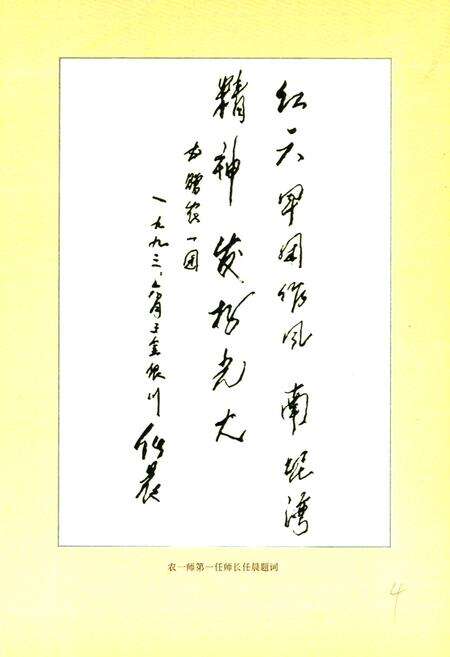 红六军团作风 南泥湾
精神 发扬光大
书赠农一团
一九九三、六月于金银川
任晨
农一师第一任师长任晨题词
4